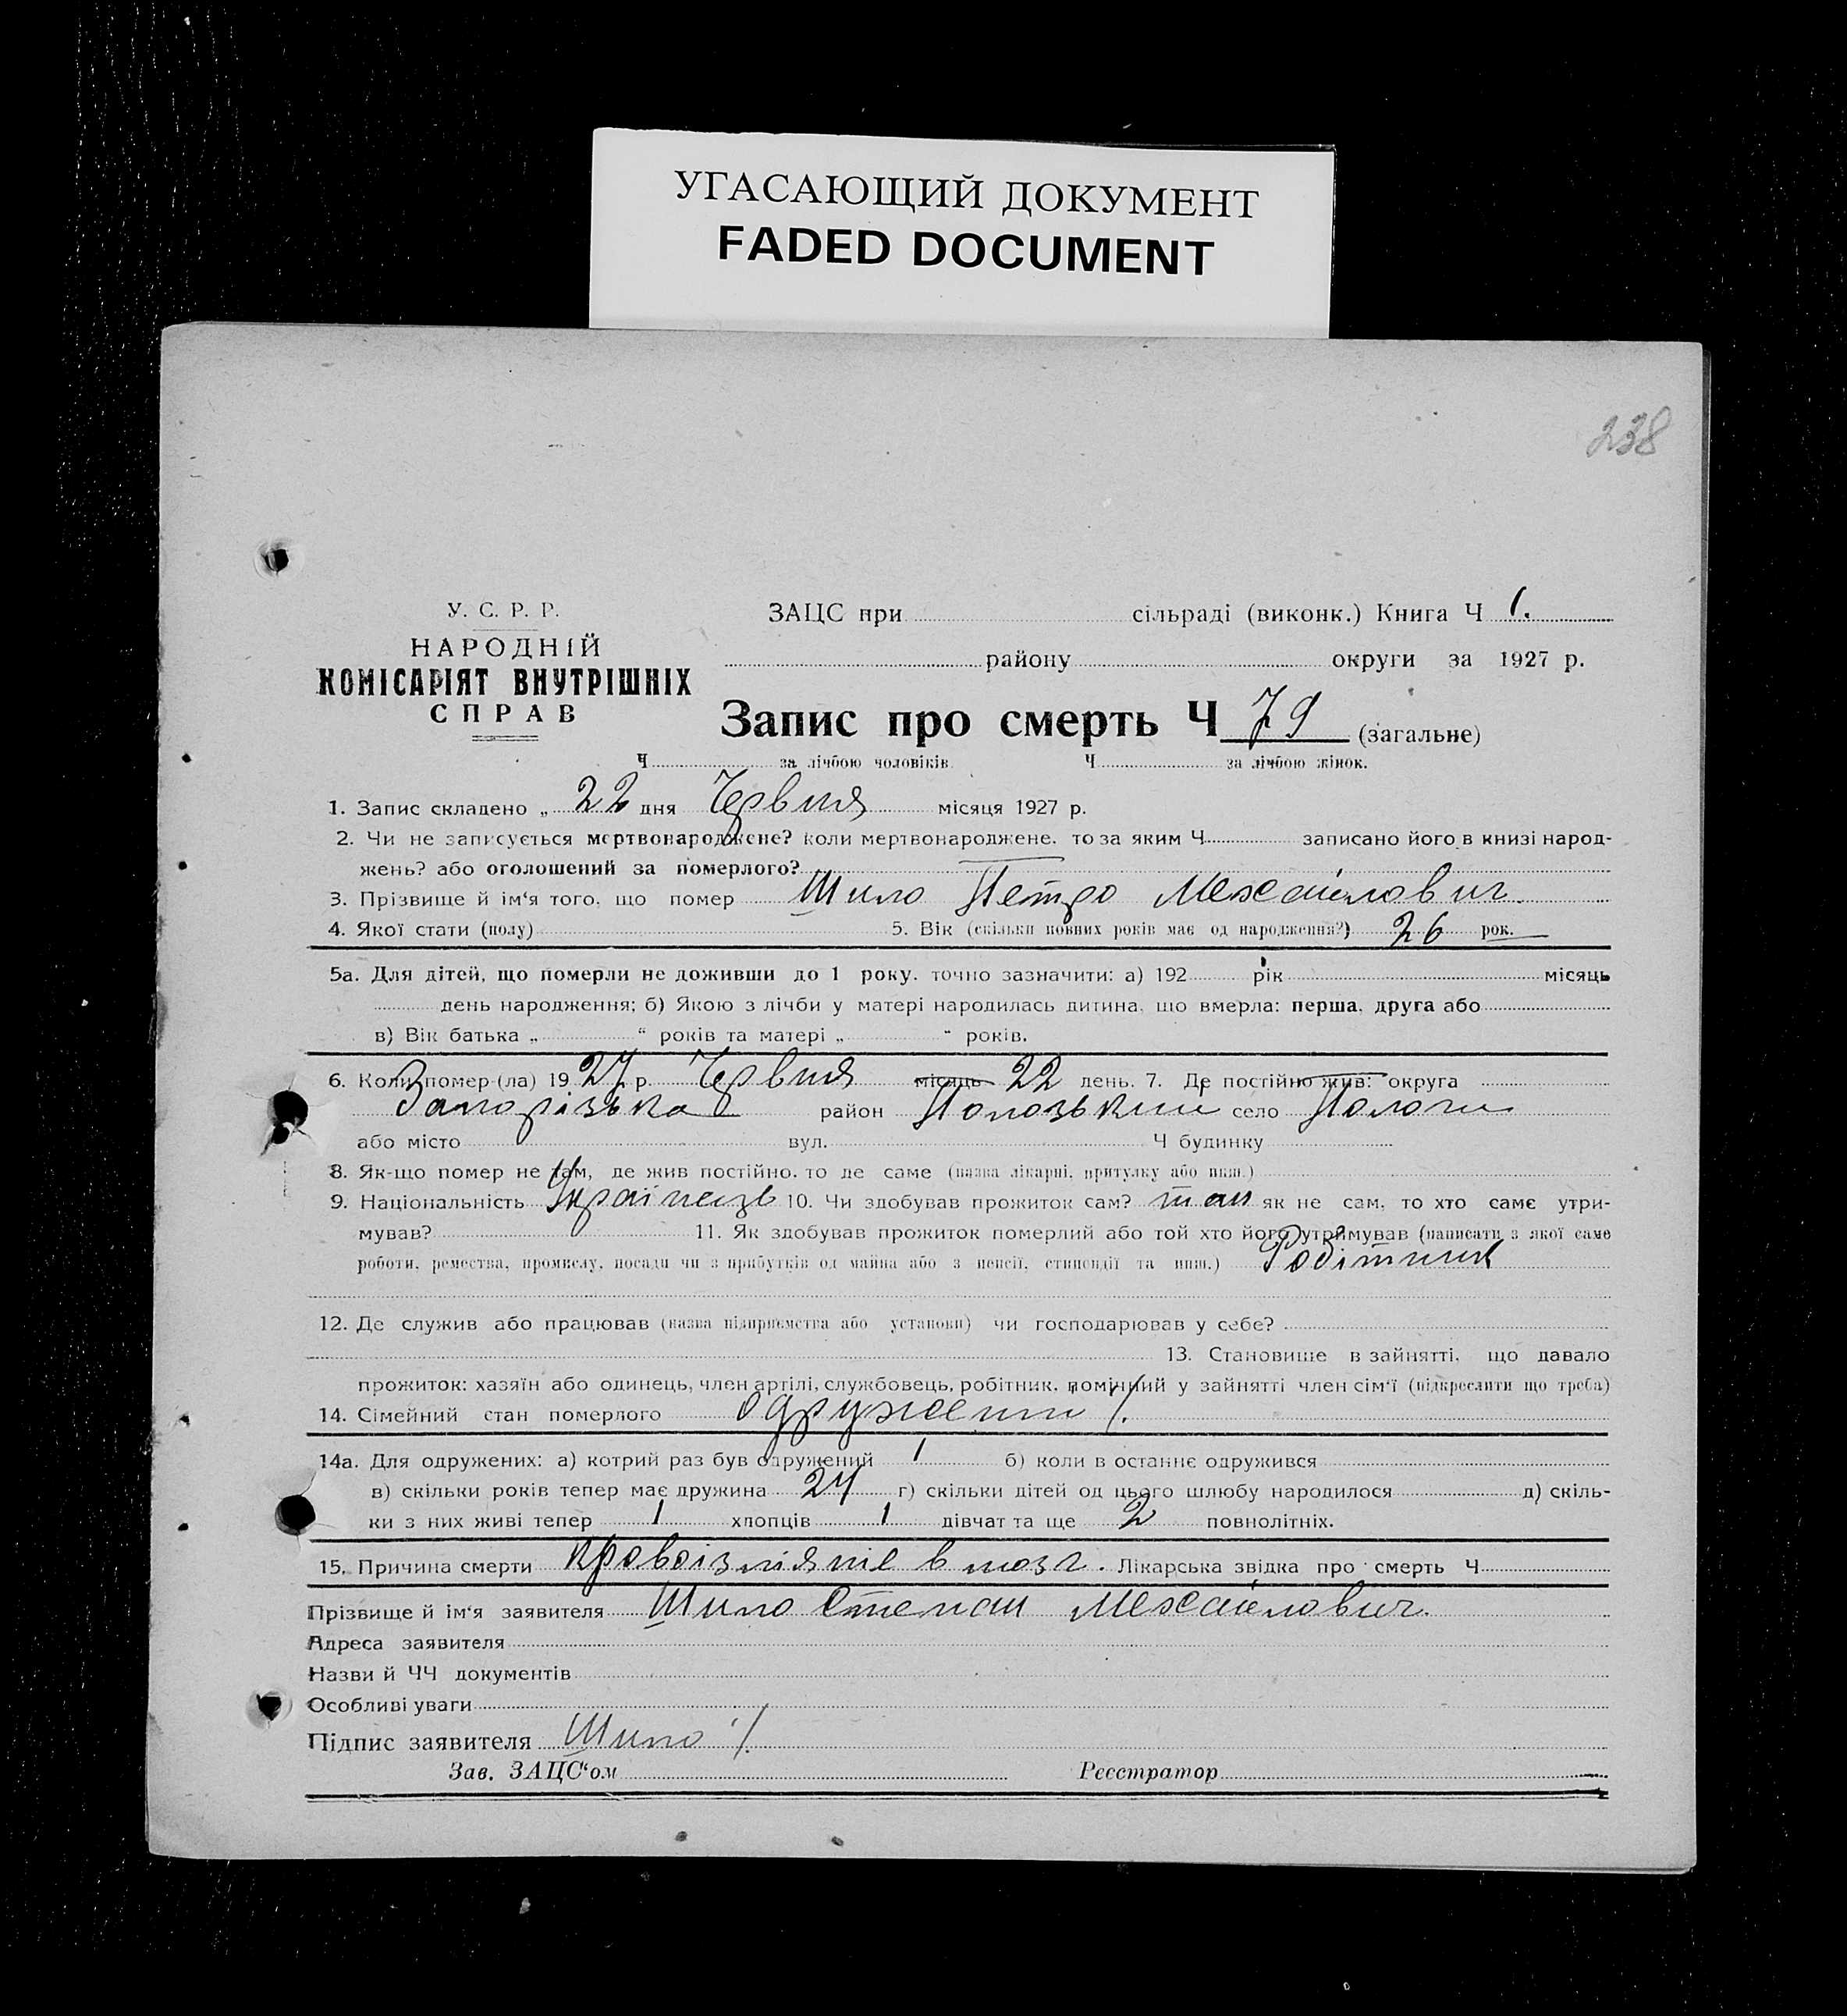 УГАСАЮЩИЙ ДОКУМЕНТ
FADED DOCUMENT
238
У. С. Р. Р.
НАРОДНІЙ
КОМІСАРІЯТ ВНУТРІШНІХ
СПРАВ
ЗАЦС при сільраді (виконк.) Книга Ч 1.
району округи за 1927 р.
Запис про смерть Ч 79 (загальне)
Ч за лічбою чоловіків Ч за лічбою жінок.
1. Запис складено „ 22 дня Червня місяця 1927 р.
2. Чи не записується мертвонароджене? коли мертвонароджене, то за яким Ч записано його в книзі народ-
жень? або оголошений за померлого?
3. Прізвище й ім‘я того, що помер Шило Петро Мехайлович.
4. Якої стати (полу) 5. Вік (скільки повних років має од народження?) 26 рок.
5а. Для дітей, що померли не доживши до 1 року, точно зазначити: а) 192 рік місяць
день народження; б) Якою з лічби у матері народилась дитина, що вмерла: перша, друга або
в) Вік батька „ “ років та матері „ “ років.
6. Коли помер (ла) 1927 р. Червня місяць 22 день. 7. Де постійно жив: округа
Запорізька район Полозький село Пологи
або місто вул. Ч будинку
8. Як-що помер не там, де жив постійно, то де саме (назва лікарні, притулку або инш.)
9. Національність Українець 10. Чи здобував прожиток сам? так як не сам, то хто саме утри-
мував? 11. Як здобував прожиток померлий або той хто його утримував (написати з якої саме
роботи, ремества, промислу, посади чи з прибутків од майна або з пенсії, стипендії та инш.) Робітник
12. Де служив або працював (назва підприємства або установи) чи господарював у себе?
13. Становище в зайнятті, що давало
прожиток: хазяїн або одинець, член артілі, службовець, робітник, помічний у зайнятті член сім‘ї (підкреслити що треба)
14. Сімейний стан померлого одружений
14а. Для одружених: а) котрий раз був одружений 1 б) коли в останнє одружився
в) скільки років тепер має дружина 24 г) скільки дітей од цього шлюбу народилося д) скіль-
ки з них живі тепер 1 хлопців 1 дівчат та ще 2 повнолітніх.
15. Причина смерти кровоізліяніе в мозг. Лікарська звідка про смерть Ч
Прізвище й ім‘я заявителя Шило Степан Мехайлович.
Адреса заявителя
Назви й ЧЧ документів
Особливі уваги
Підпис заявителя Шило
Зав. ЗАЦС‘ом Реєстратор